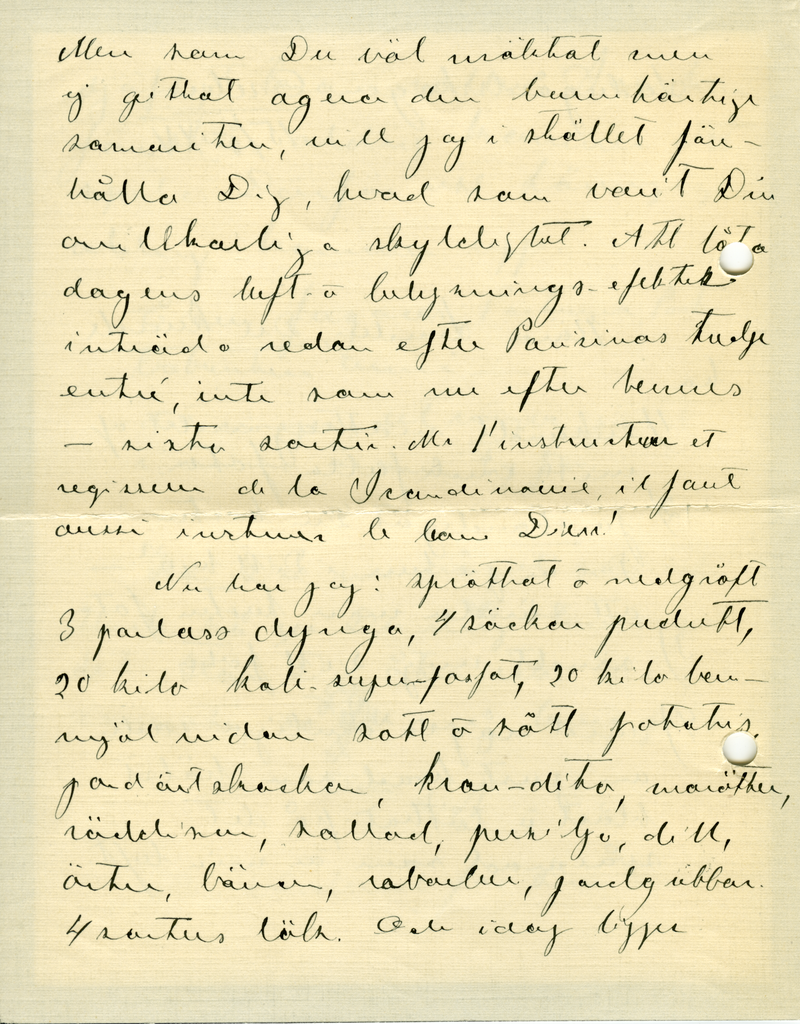 Men som Du väl mäktat men
ej githat agera den barmhärtige
samariten, vill jag i stället före-
hålla Dig, hvad som varit Din
ovillkorliga skyldighet. Att låta
dagens luft- o belysnings-efekter
inträda redan efter Parisinas tredje
entré, inte som nu efter hennes
– sista sortie. Mr l'instructeur et
regisseur de la Scandinavie, il faut
aussi instruer le bon Dieu!
Nu har jag: spröthat o nedgräft
3 parlass dynga, 4 säckar pudrett,
20 kilo kali-super-fosfat, 20 kilo ben-
mjöl vidare satt o sått potatis,
jordärtskockor, kron-dito, morötter,
räddisor, sallad, persilja, dill,
ärter, bönor, rabarber, jordgubbar.
4 sorters lök. Och idag ligger